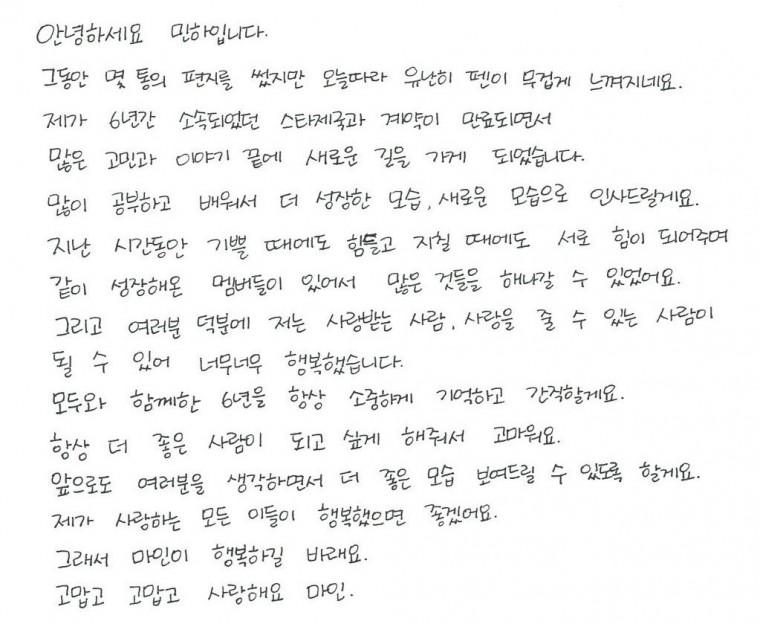 안녕하세요 민하입니다.
그동안 몇 통의 편지를 썼지만 오늘따라 유난히 펜이 무겁게 느껴지네요.
제가 6년간 소속되었던 스타제국과 계약이 만료되면서
많은 고민과 이야기 끝에 새로운 길을 가게 되었습니다.
많이 공부하고 배워서 더 성장한 모습, 새로운 모습으로 인사드릴게요.
지난 시간동안 기쁠 때에도 힘들고 지칠 때에도 서로 힘이 되어주며
같이 성장해온 멤버들이 있어서 많은 것들을 해나갈 수 있었어요.
그리고 여러분 덕분에 저는 사랑받는 사람, 사랑을 줄 수 있는 사람이
될 수 있어 너무너무 행복했습니다.
모두와 함께한 6년을 항상 소중하게 기억하고 간직할게요.
항상 더 좋은 사람이 되고 싶게 해줘서 고마워요.
앞으로도 여러분을 생각하면서 더 좋은 모습 보여드릴 수 있도록 할게요.
제가 사랑하는 모든 이들이 행복했으면 좋겠어요.
그래서 마인이 행복하길 바래요.
고맙고 고맙고 사랑해요 마인.